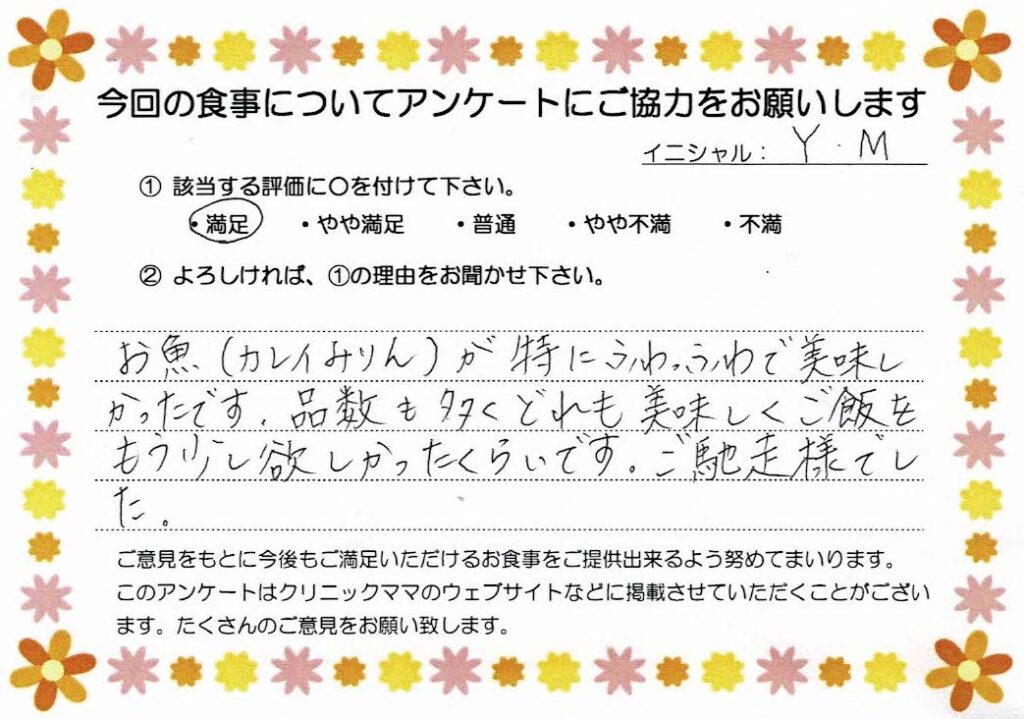 今回の食事についてアンケートにご協力をお願いします
イニシャル： Y．M
① 該当する評価に○を付けて下さい。
・満足 ・やや満足 ・普通 ・やや不満 ・不満
② よろしければ、①の理由をお聞かせ下さい。
お魚（カレイみりん）が特にふわっふわで美味し
かったです。品数も多くどれも美味しくご飯を
もう少し欲しかったくらいです。ご馳走様でし
た。
ご意見をもとに今後もご満足いただけるお食事をご提供出来るよう努めてまいります。
このアンケートはクリニックママのウェブサイトなどに掲載させていただくことがござい
ます。たくさんのご意見をお願い致します。